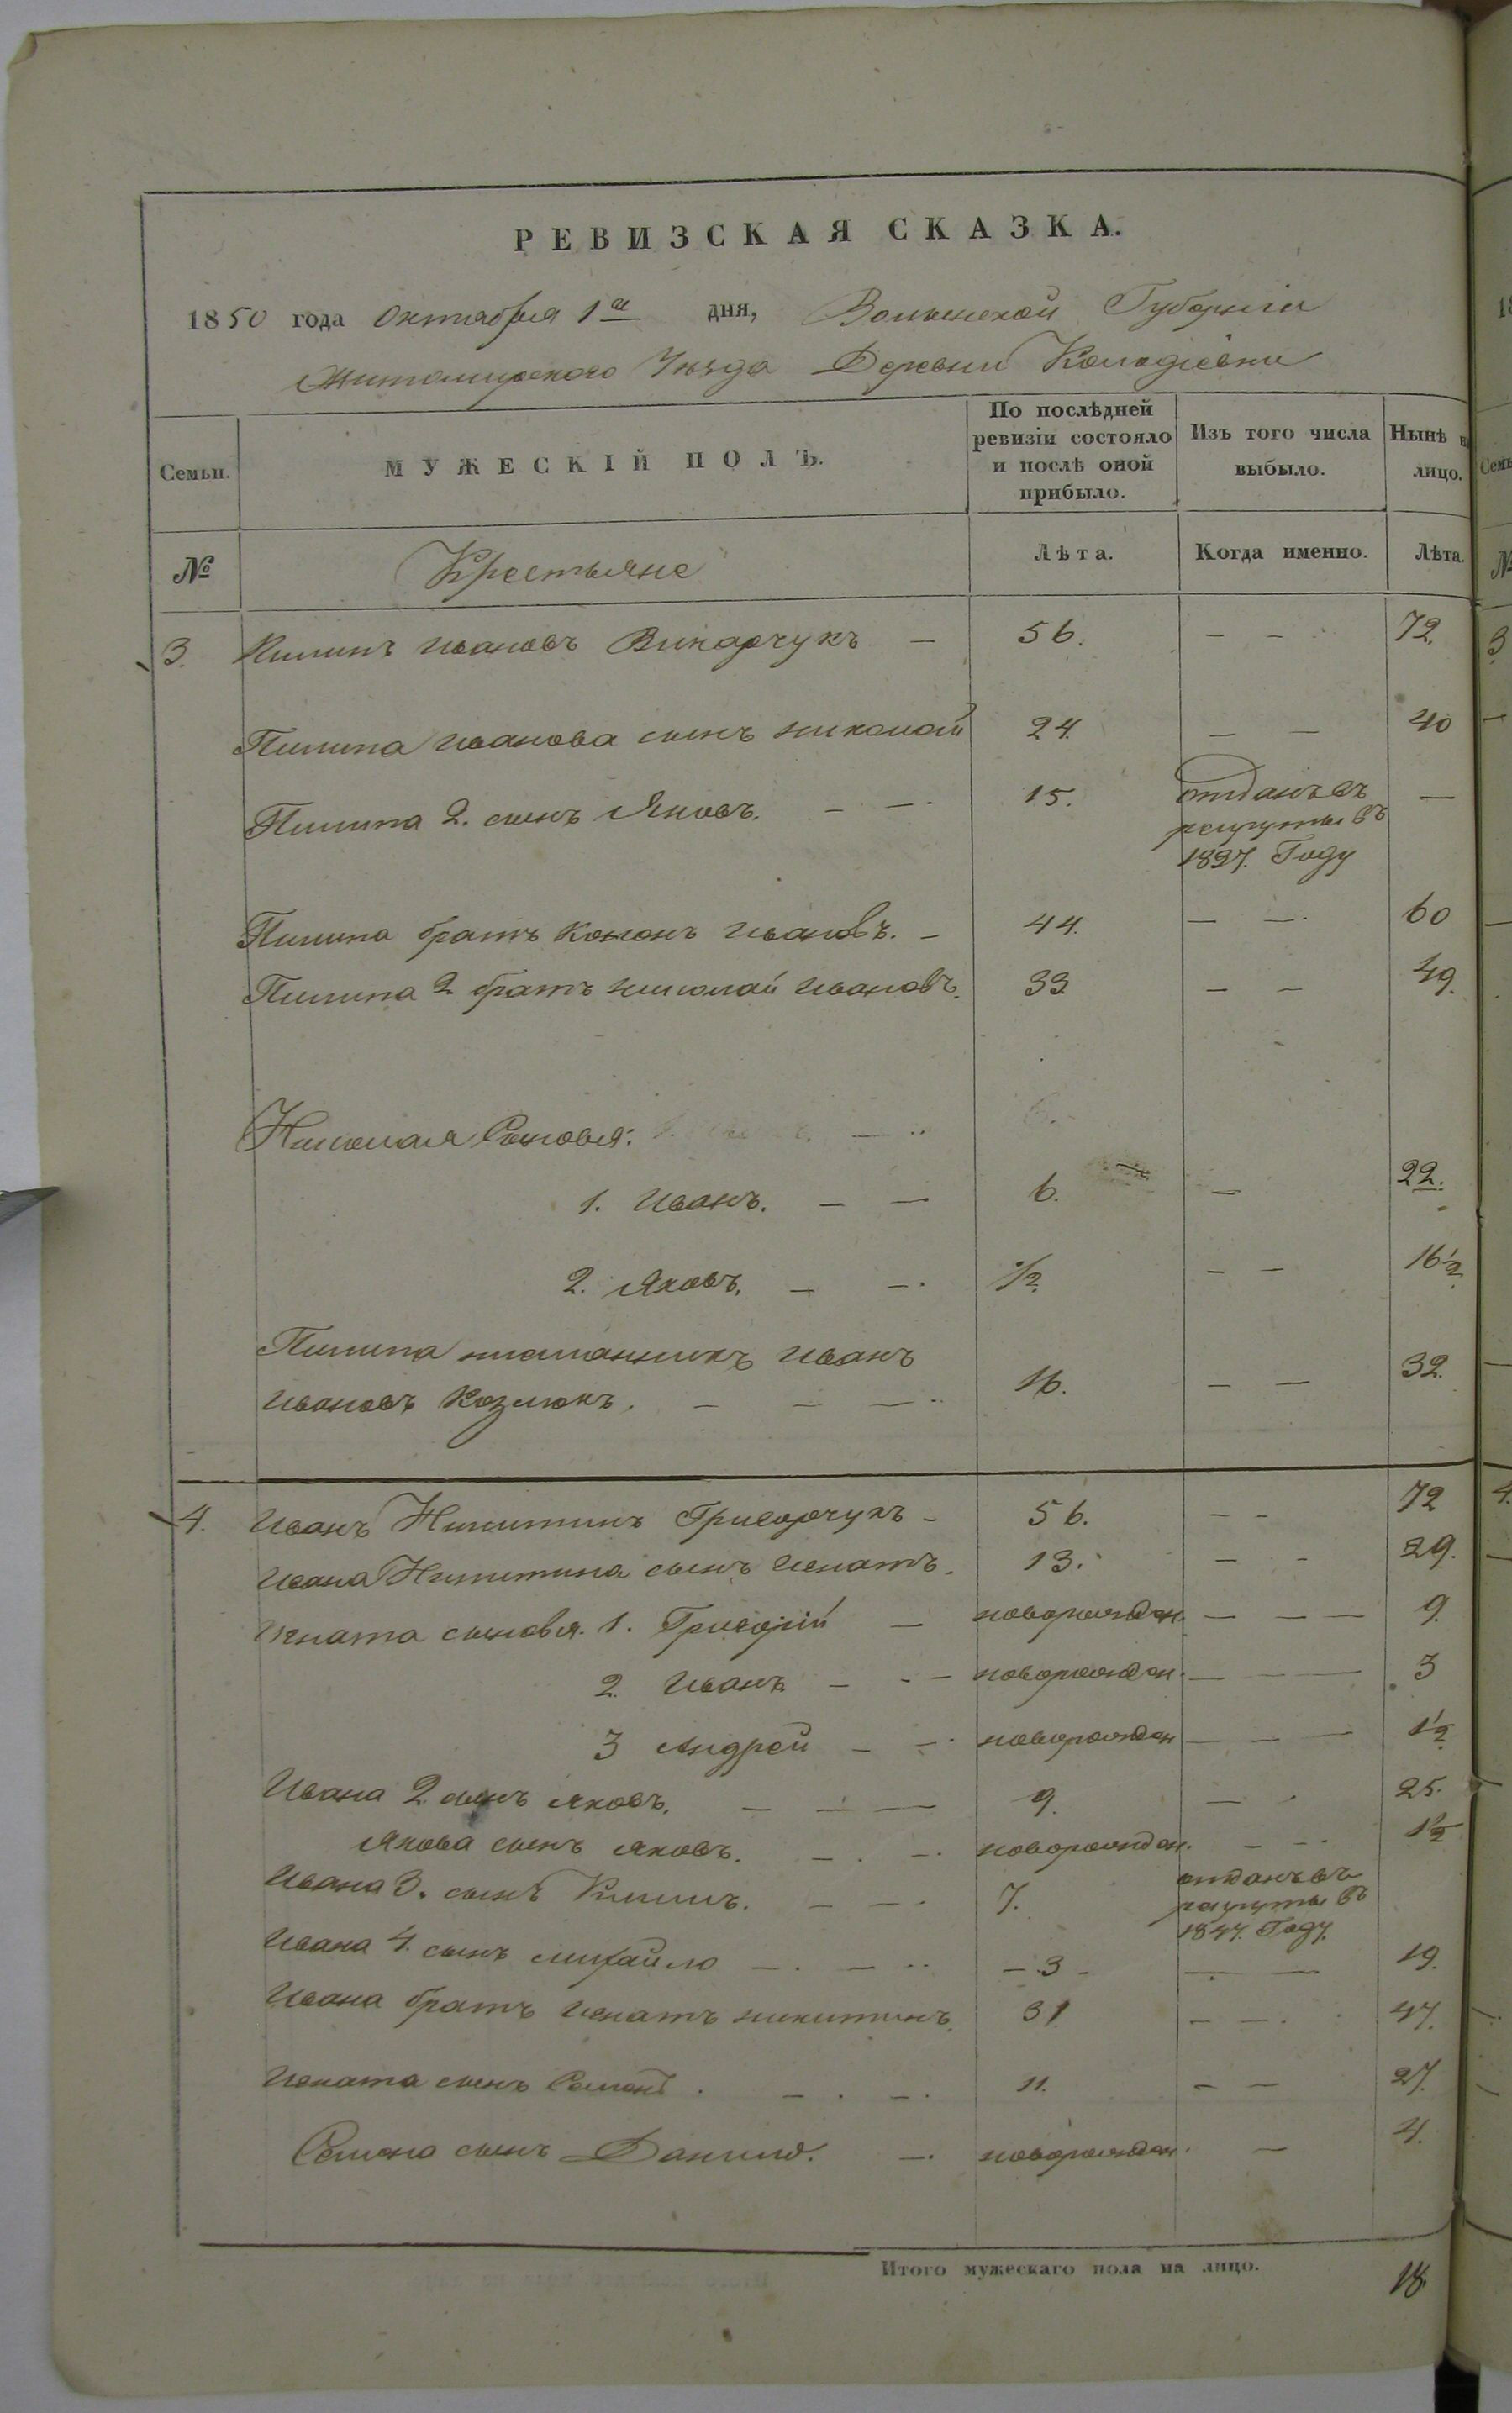 РЕВИЗСКАЯ СКАЗКА.
1850 года Октября 1го дня, Волынской Губерніи
Житомирского Уѣзда Деревни Колодіевки
Семьи.
МУЖЕСКІЙ ПОЛЪ.
По послѣдней ревизіи состояло и послѣ оной прибыло.
Изъ того числа выбыло.
Нынѣ на лицо.
№ Крестьяне Лѣта. Когда именно. Лѣта.
3. Пилипъ Ивановъ Винарчукъ — 56. — — 72.
Пилипа Иванова сынъ Николай 24. — — 40
Пилипа 2. сынъ Яковъ. — — 15. отданъ въ —
рекруты въ
1827. Году
Пилипа братъ Кононъ Ивановъ. — 44. — — 60
Пилипа 2 братъ Николай Ивановъ. 33 — — 49.
Николая Сыновья:
1. Иванъ. — — 6. — 22.
2. Яковъ. — — 1/2. — — 16 1/2
Пилипа племянникъ Иванъ
Ивановъ Козлюкъ. — — — 16. — — 32.
4. Иванъ Никитинъ Григорчукъ — 56. — — 72
Ивана Никитина сынъ Игнатъ. 13. — — 29.
Игната сыновья. 1. Григорій — новорожден. — — — 9.
2. Иванъ — — новорожден. — — — 3
3 Андрей — — новорожден — — — 1 1/2
Ивана 2. сынъ Яковъ. — — — 9. — 25.
Якова сынъ Яковъ. — — новорожден. — — 1 1/2
Ивана 3. сынъ Климъ. — — 7. отданъ въ
рекруты въ
1847. Году.
Ивана 4. сынъ Михайло — — — 3 — — — 19.
Ивана братъ Игнатъ Никитинъ. 31 — — 47.
Игната сынъ Семенъ. — — 11. — — 27.
Семена сынъ Данило. — новорожден. — 4.
Итого мужескаго пола на лицо. 18.